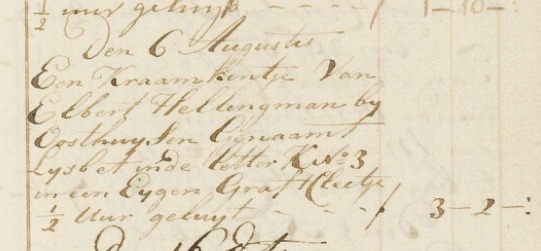 ½ uur geluyt - - - - / 1-10-:
Den 6 Augustus
Een Kraam kintje Van
Elbert Hellingman by
Oosthuysen Genaamt
Lysbet in de letter K N.º 3
in een Eygen Graf t Cleetje
½ Uur geluyt - - - / 3-2-: